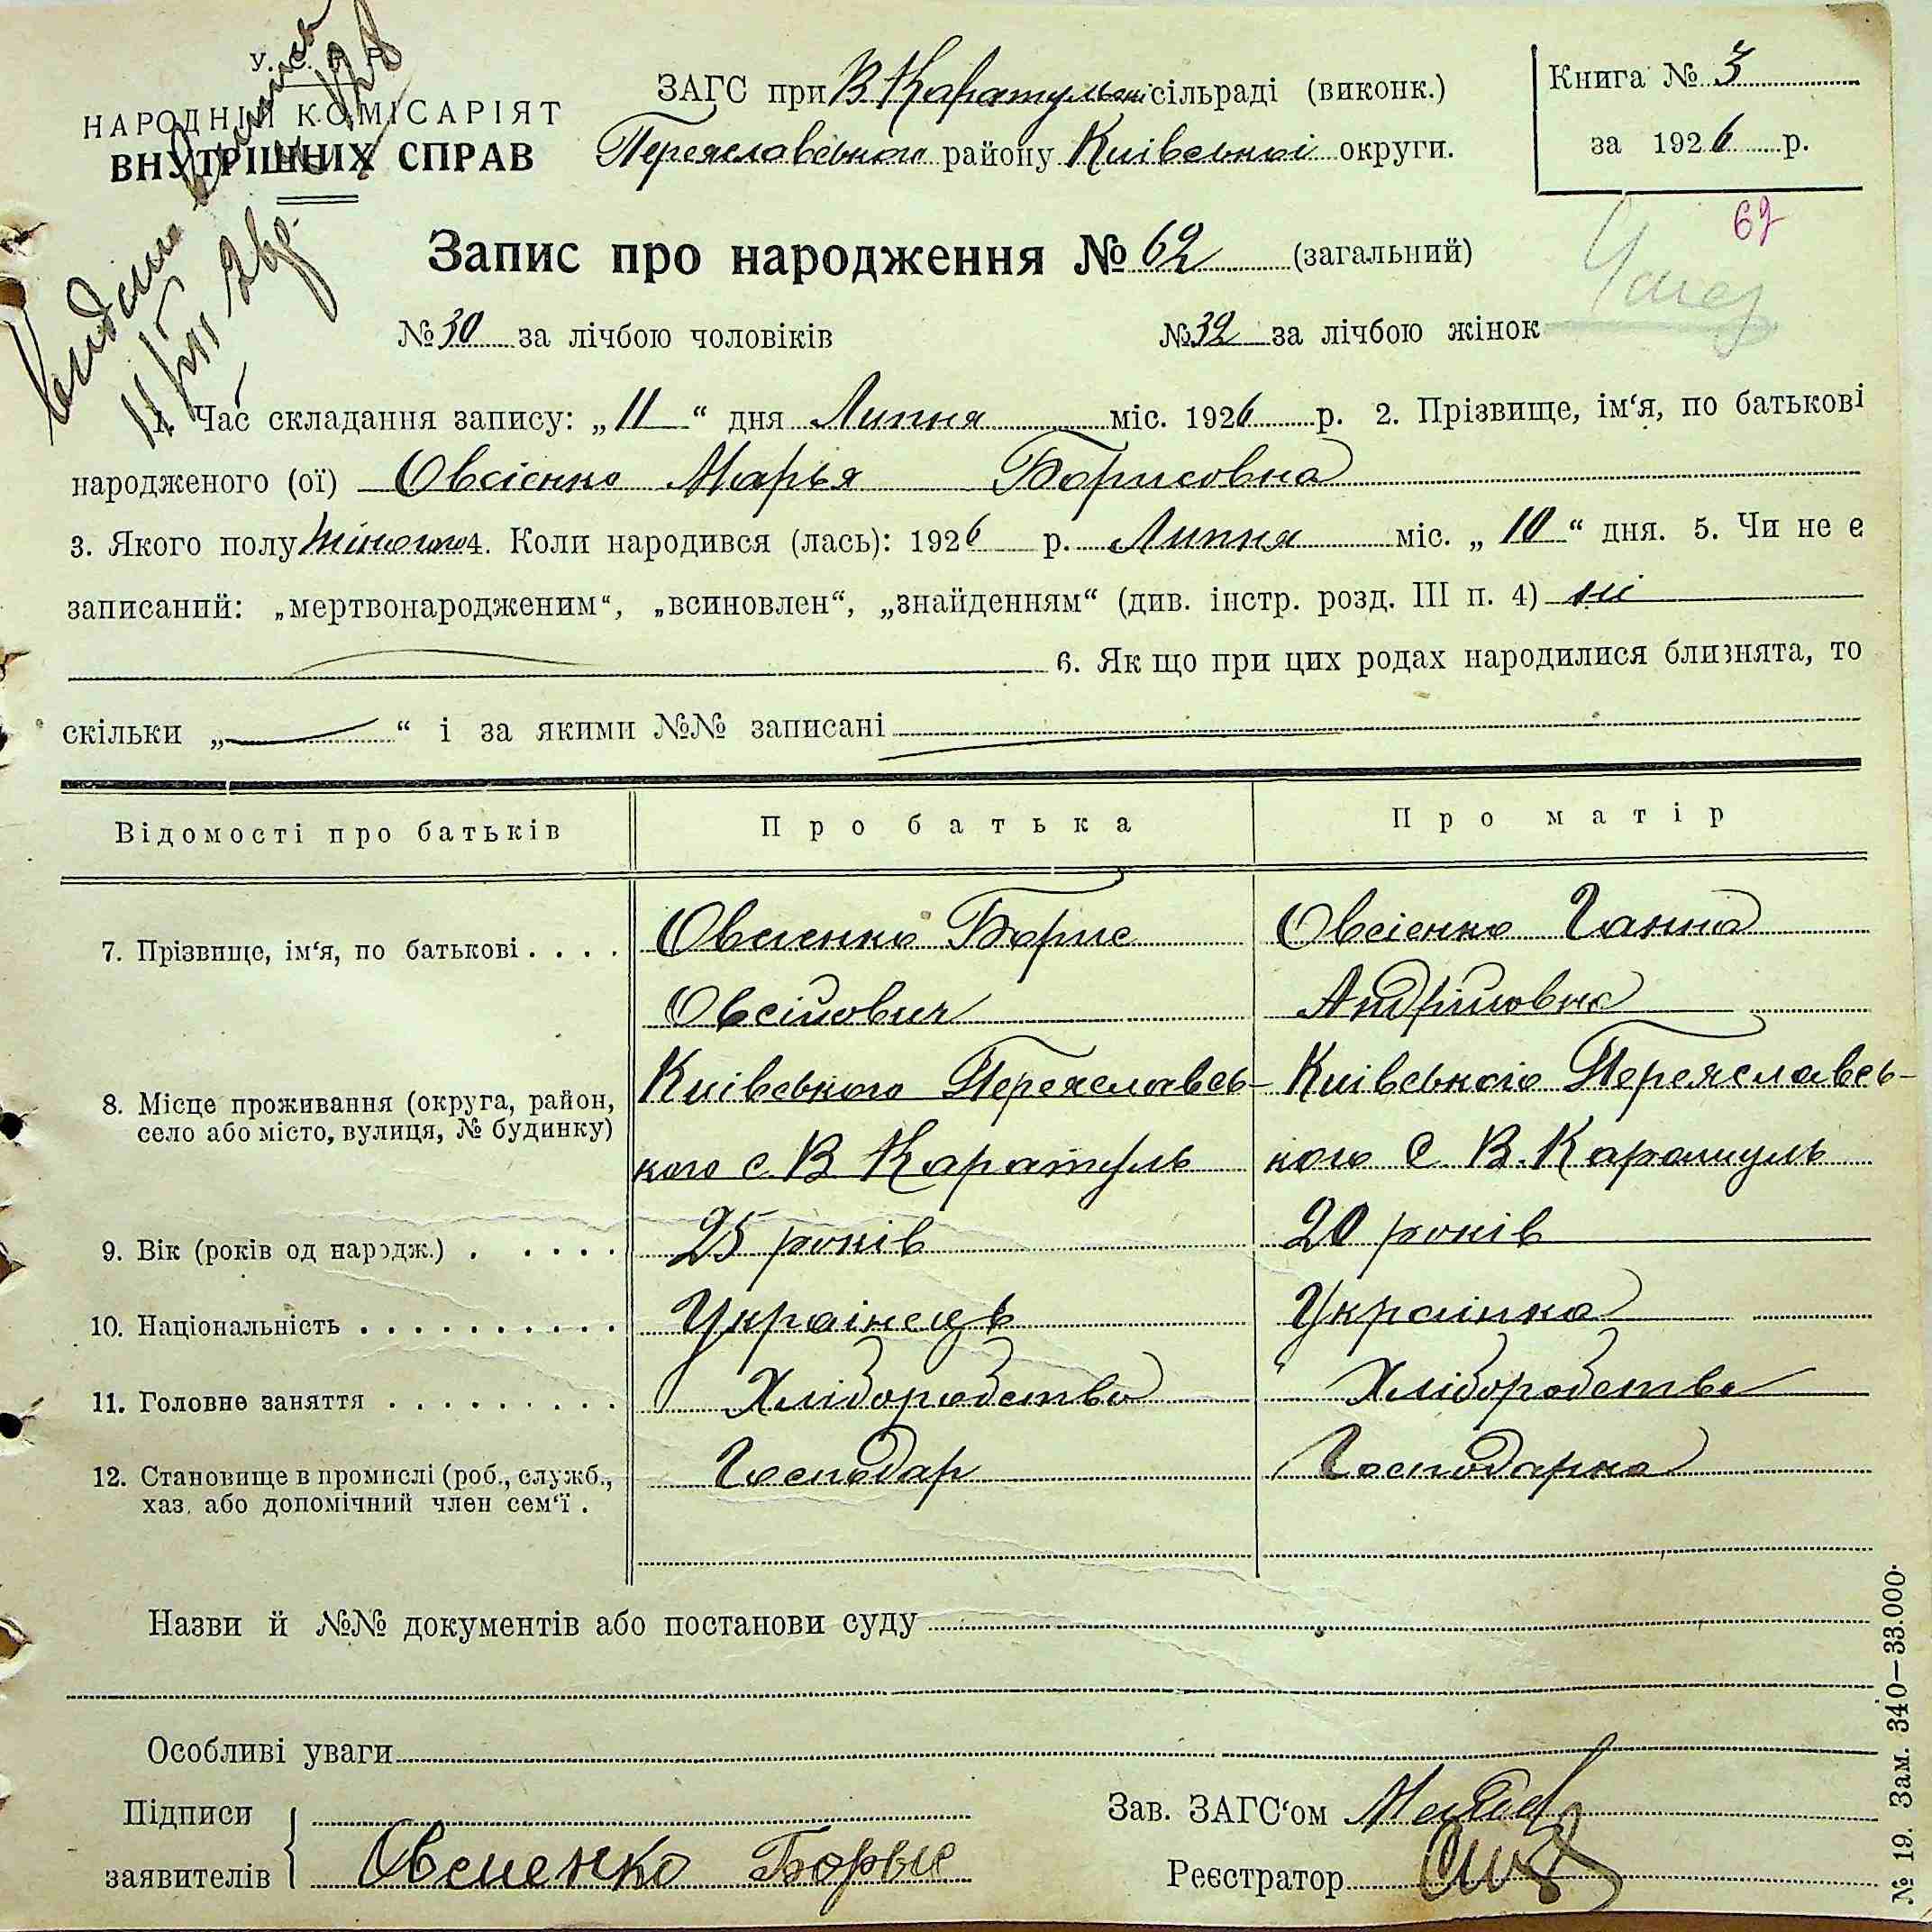 У. С. Р. Р.
НАРОДНІЙ КОМІСАРІЯТ
ВНУТРІШНИХ СПРАВ
ЗАГС при В Каратульськ сільраді (виконк.)
Переяславського району Київської округи.
Книга № 3
за 1926 р.
62
Запис про народження № 62 (загальний)
№ 30 за лічбою чоловіків № 32 за лічбою жінок
11/VII 26р.
1. Час складання запису: „11“ дня Липня міс. 1926 р. 2. Прізвище, ім‘я, по батькові
народженого (ої) Овсієнко Марья Борисовна
3. Якого полу жіночого 4. Коли народився (лась): 1926 р. Липня міс. „10“ дня. 5. Чи не є
записаний: „мертвонародженим“, „всиновлен“, „знайденням“ (див. інстр. розд. III п. 4) ні
6. Як що при цих родах народилися близнята, то
скільки „ “ і за якими №№ записані
Відомості про батьків Про батька Про матір
7. Прізвище, ім‘я, по батькові . . . . Овсиенко Борис Овсієнко Ганна
Овсійович Андрійовна
8. Місце проживання (округа, район, Киівського Переяславсь- Киівського Переяславсь-
село або місто, вулиця, № будинку) кого с. В Каратуль кого С. В. Каратуль
9. Вік (років од народж.) . . . . . 25 років 20 років
10. Національність . . . . . . . . . . Украінець Украінка
11. Головне заняття . . . . . . . . . Хліборобство Хліборобство
12. Становище в промислі (роб., служб., Господар Господарка
хаз. або допомічний член сем‘ї .
Назви й №№ документів або постанови суду
Особливі уваги
Підписи
заявителів Овсиенко Борыс
Зав. ЗАГС‘ом
Реєстратор
№ 19. Зам. 340—33.000.